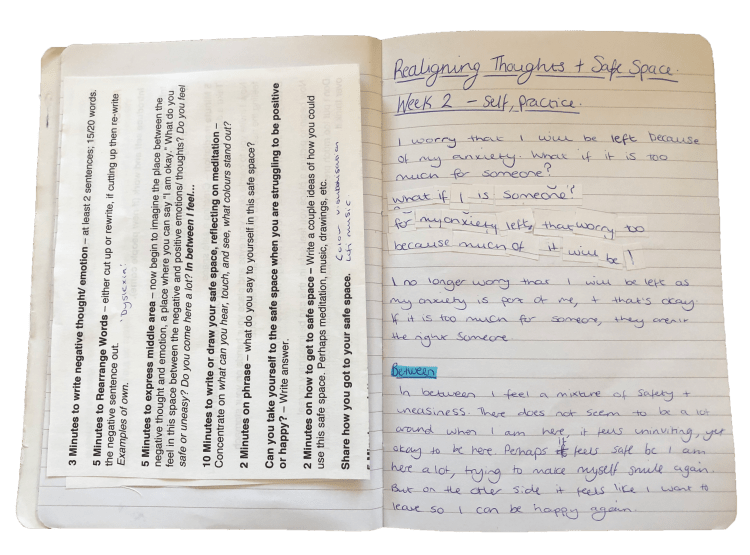 3 Minutes to write negative thought/ emotion – at least 2 sentences; 15/20 words.
5 Minutes to Rearrange Words – either cut up or rewrite, if cutting up then re-write
the negative sentence out.
Examples of own.
'Dyslexia'
5 Minutes to express middle area – now begin to imagine the place between the
negative thought and emotion, a place where you can say "I am okay." What do you
feel in this space between the negative and positive emotions/ thoughts? Do you feel
safe or uneasy? Do you come here a lot? In between I feel...
10 Minutes to write or draw your safe space, reflecting on meditation –
Concentrate on what can you hear, touch, and see, what colours stand out?
2 Minutes on phrase – what do you say to yourself in this safe space?
Can you take yourself to the safe space when you are struggling to be positive
or happy? – Write answer.
2 Minutes on how to get to safe space – Write a couple ideas of how you could
use this safe space. Perhaps meditation, music, drawings, etc.
Share how you got to your safe space.
Color
music
Realigning Thoughts + Safe Space.
Week 2 – Self, practice.
I worry that I will be left because
of my anxiety. What if it is too
much for someone?
what if I is someone?
for my anxiety left, that worry too
because much of it will be !
I no longer worry that I will be left as
my anxiety is part of me, + that's okay.
If it is too much for someone, they aren't
the right someone.
Between
In between I feel a mixture of safety +
uneasiness. There does not seem to be a lot
around when I am here, it feels uninviting, yet
okay to be here. Perhaps it feels safe bc I am
here a lot, trying to make myself smile again.
But on the other side it feels like I want to
leave so I can be happy again.